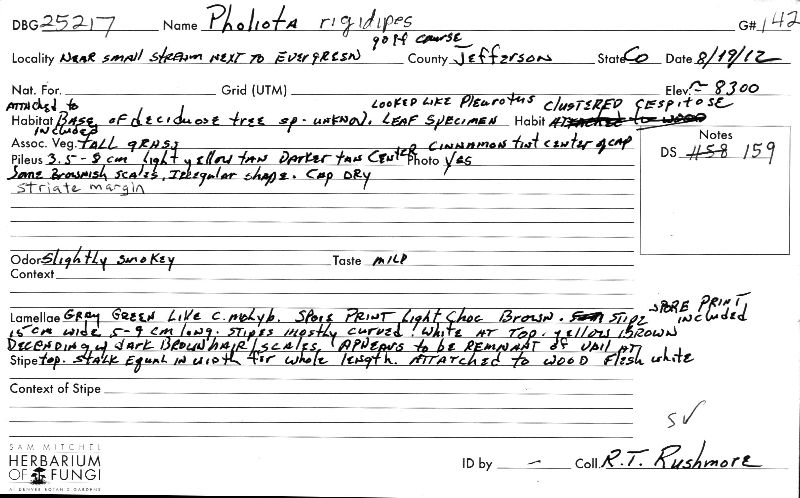 DBG 25217 Name Pholiota rigidipes G# 142
golf course
Locality NEAR small STREAM NEXT TO EVERGREEN County Jefferson State Co Date 8/19/12
Nat. For. Grid (UTM) Elev. ~ 8300
ATTACHED to LOOKED LIKE PLEUROTUS CLUSTERED CESPITOSE
Habitat BASE OF deciduose tree sp. UNKNOW. LEAF SPECIMEN Habit ATTACHED to WOOD
INCLUDED
Assoc. Veg. TALL GRASS CINNAMON TINT CENTER of CAP
Notes
Pileus 3.5 - 8 cm light yellow TAN DARKER TAN CENTER Photo yes
DS #58 159
Some Brownish scales, Irregular shape. Cap DRY
striate margin
Odor Slightly smokey Taste MILD
Context
SPORE PRINT
Lamellae GRAY GREEN LIKE C. molyb. SPORE PRINT Light Choc BROWN. STIPE INCLUDED
15 CM wide 5-9 cm long. STIPES mostly curved. WHITE AT TOP. yellow BROWN
DECENDING w DARK BROWN HAIR/SCALES. APPEARS to be REMNANT of VAIL AT
Stipe top. STALK EQUAL IN WIDTH for whole length. ATTATCHED to WOOD Flesh white
Context of Stipe
SV
SAM MITCHEL
HERBARIUM
OF FUNGI
AT DENVER BOTANIC GARDENS
ID by – Coll. R.T. Rushmore